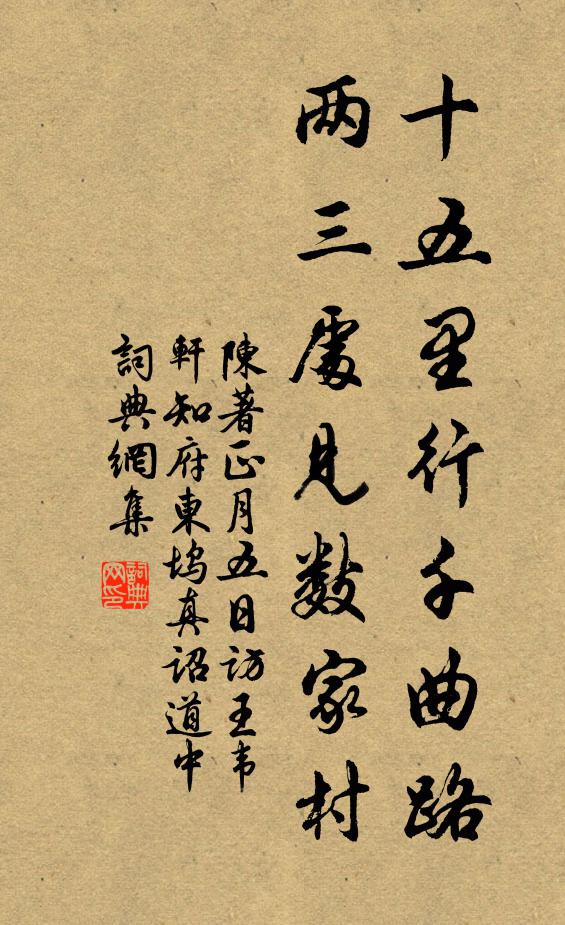 十五里行千曲路
两三處見數家村
陳著正月五日訪王韦
軒知府東塢真詔道中
詞典網集
詞典网印